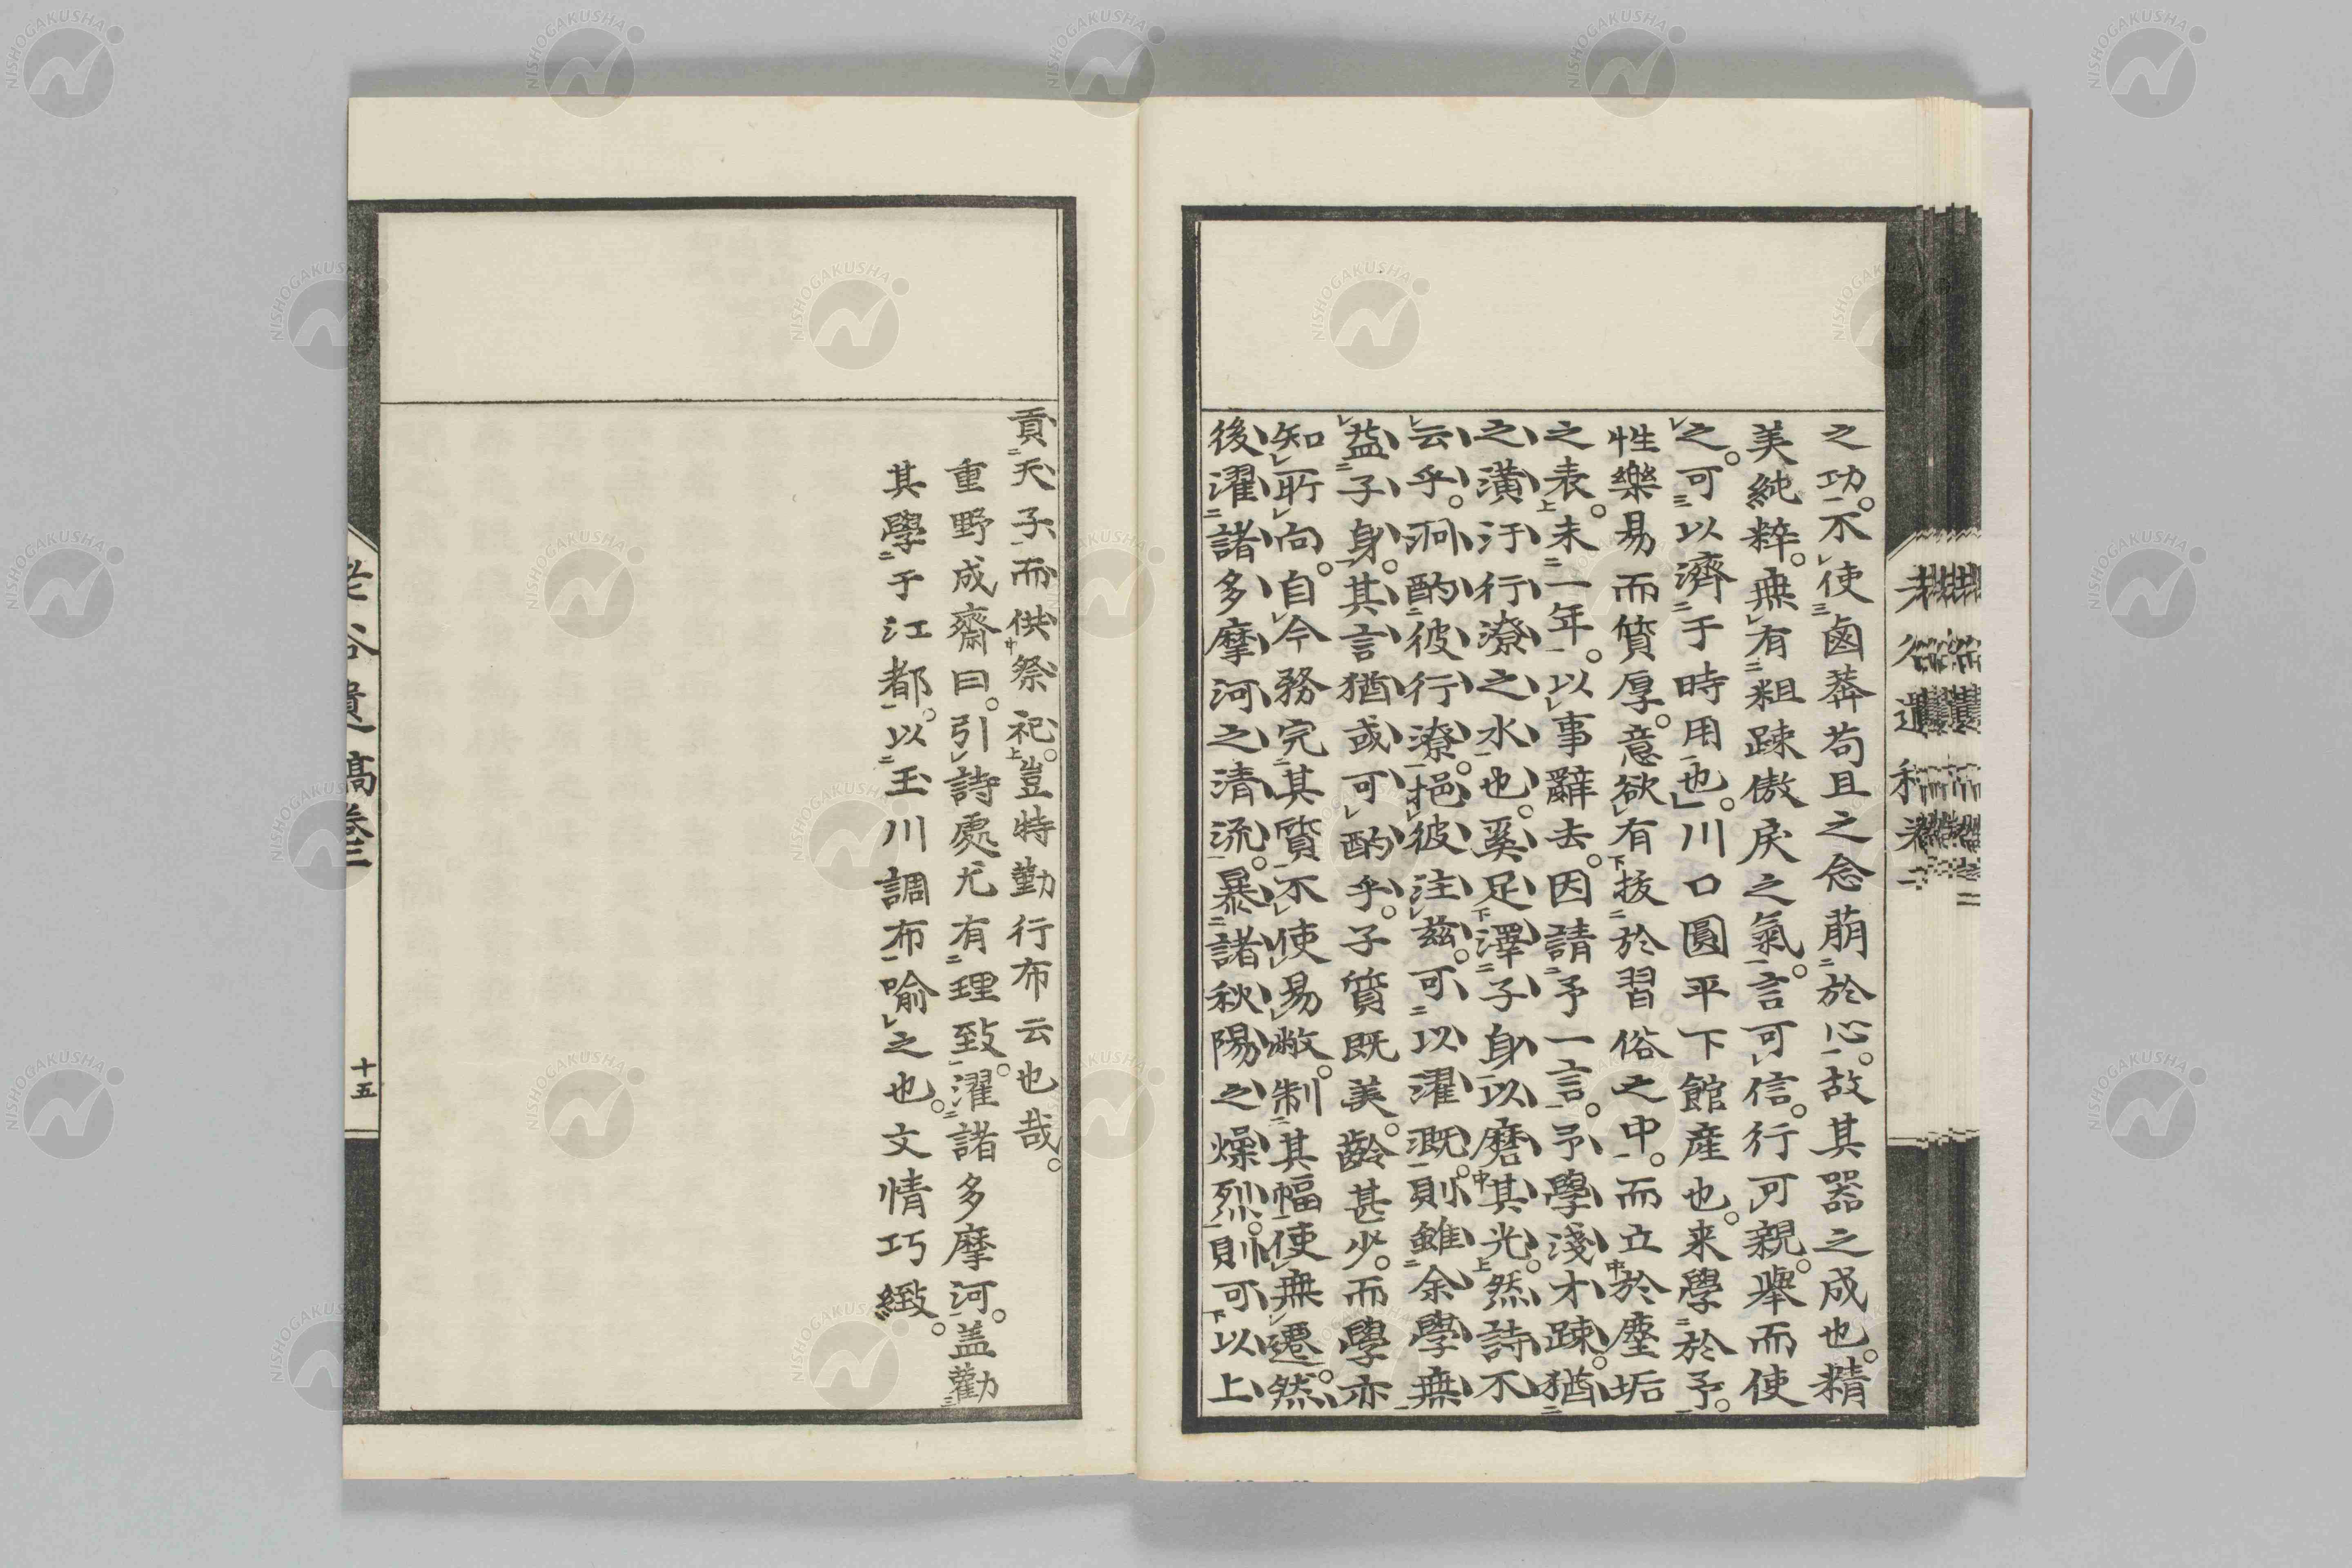 之功。不使鹵莽苟且之念萠於心。故其器之成也。精
美純粹。無有粗踈傲戾之氣。言可信。行可親。舉而使
之。可以濟于時用也。川口圓平下館産也。来學於予。
性樂易而質厚。意欲有拔於習俗之中。而立於塵垢
之表。未一年。以事辭去。因請予一言。予學淺才踈。猶
之潢汙行潦之水也。奚足澤子身以磨其光。然詩不
云乎。泂酌彼行潦。挹彼注茲。可以濯溉。則雖余學無
益子身。其言猶或可酌乎。子質既美。齡甚少。而學亦
知所向。自今務完其質。不使易敝。制其幅。使無遷。然
後濯諸多摩河之清流。暴諸秋陽之燥烈。則可以上
貢天子而供祭祀。豈特勤行布云也哉。
重野成齋曰。引詩處尤有理致。濯諸多摩河。盖勸
其學于江都。以玉川調布喻之也。文情巧緻。
遺稿卷三
十五
NISHOGAKUSHA